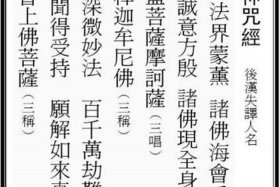 神咒經 後漢失譯人名
法界蒙薰 諸佛海會
誠意方殷 諸佛現全身
蓋菩薩摩訶薩（三唱）
釋迦牟尼佛（三稱）
深微妙法 百千萬劫難
聞得受持 願解如來
會上佛菩薩（三稱）